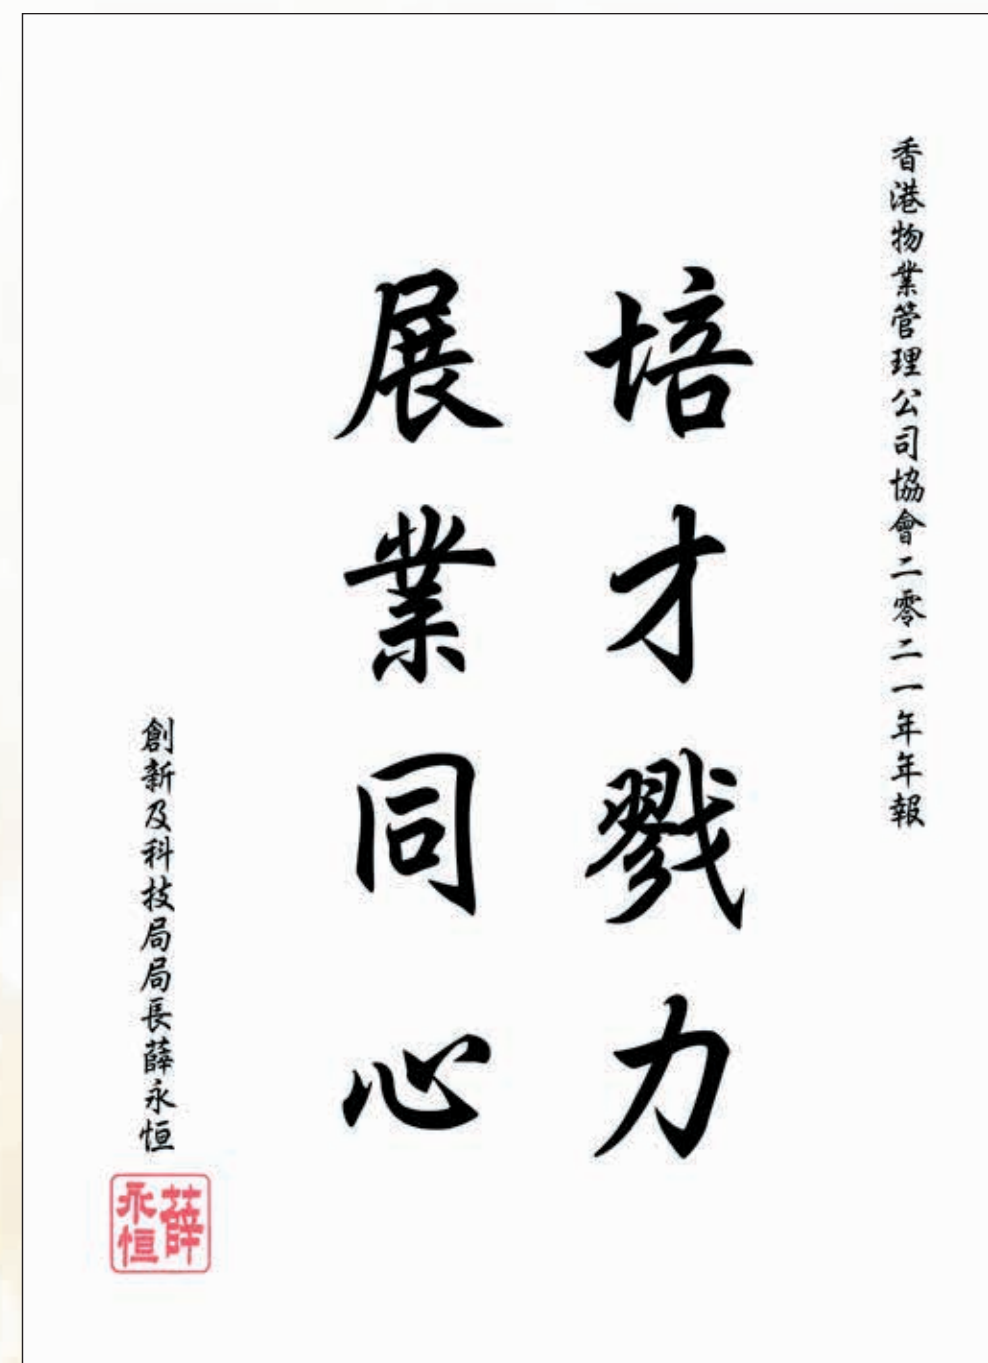 香港物業管理公司協會二零二一年年報
培才戮力
展業同心
創新及科技局局長薛永恒
薛
永恒